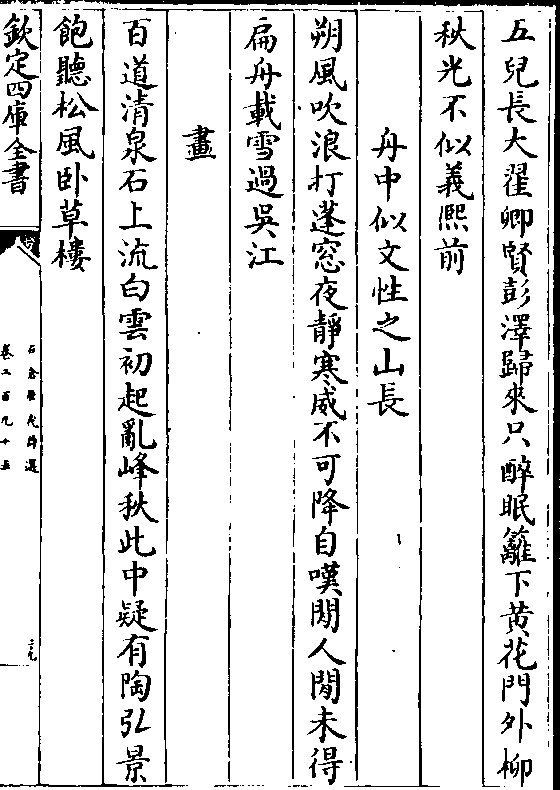 五兒長大翟卿賢彭澤歸來只醉眠籬下黄花門外柳
秋光不似義熙前
舟中似文性之山長
朔風吹浪打蓬窓夜靜寒威不可降自嘆閒人閒未得
扁舟載雪過吳江
畫
百道清泉石上流白雲初起亂峰秋此中疑有陶弘景
飽聽松風卧草樓
欽定四庫全書
石倉歷代詩選
卷二百九十五